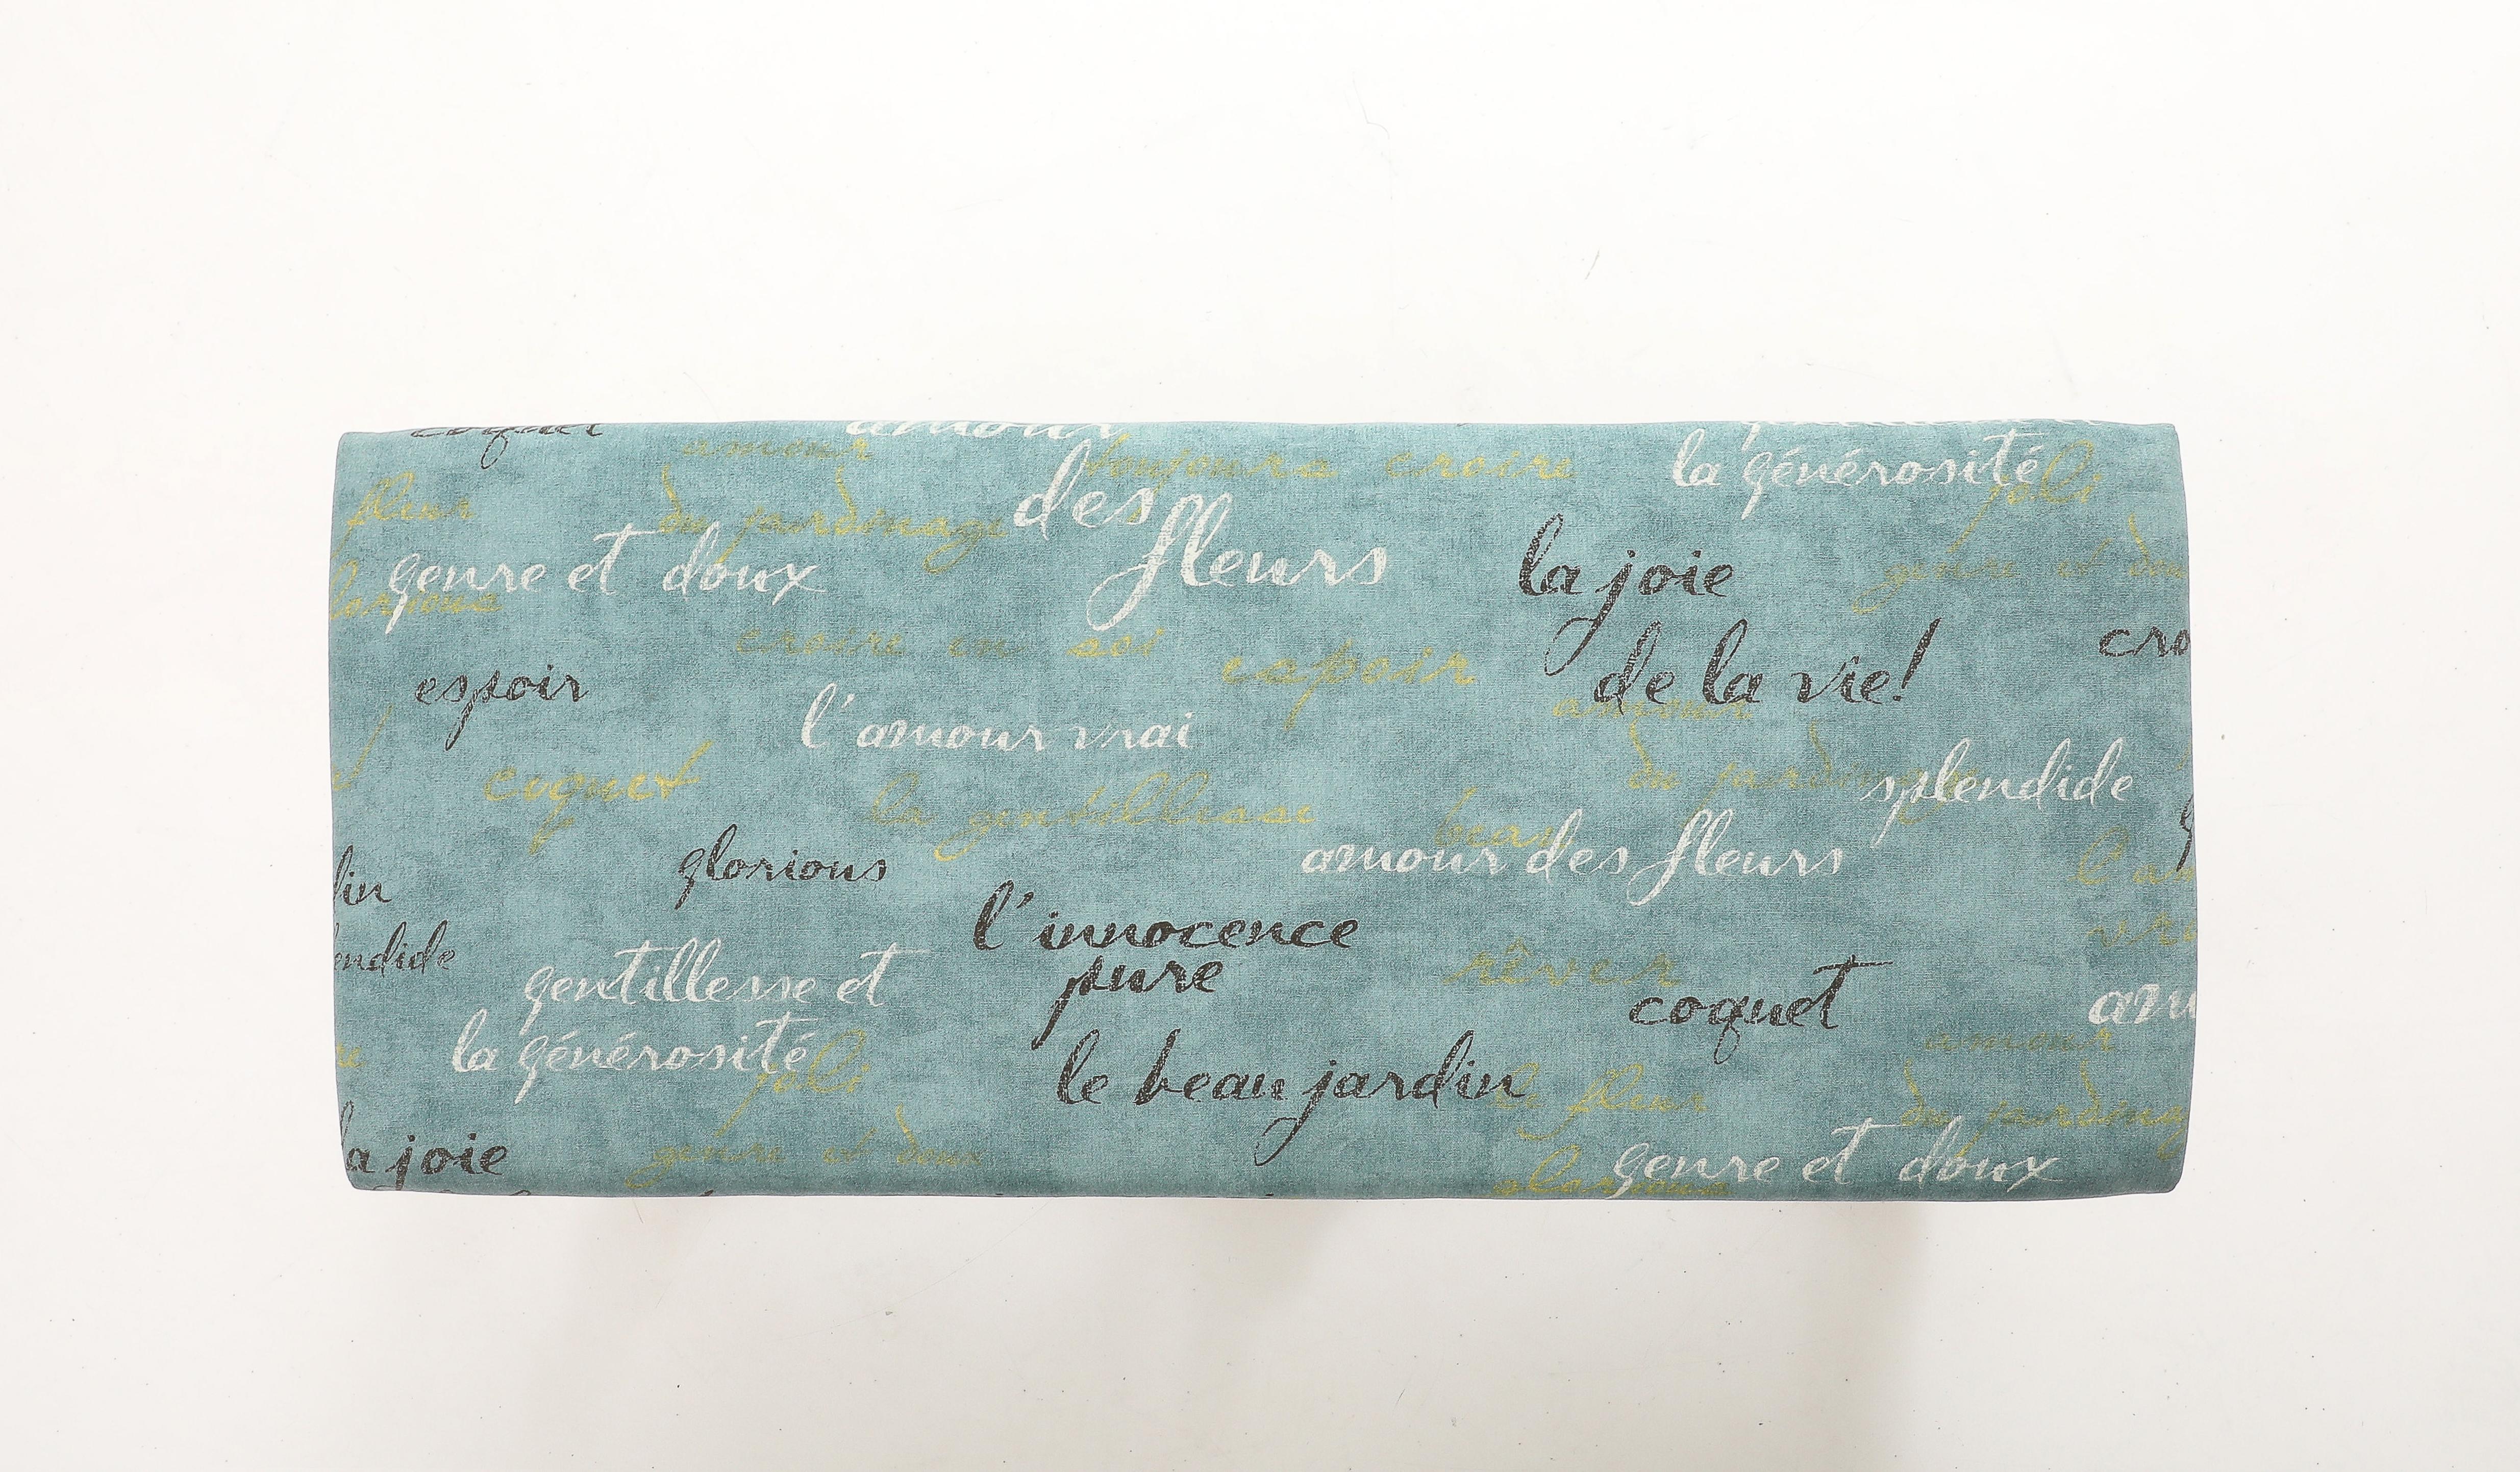 coquet
amour
amour
toujours croire
la générosité
joli
fleur
du jardinage
des
fleurs
genre et doux
glorious
la joie
genre et doux
croire en soi
espoir
de la vie!
cro
espoir
l'amour vrai
amour
du jardinage
splendide
coquet
la gentillesse
beau
amour des fleurs
glorious
din
l'innocence
pure
endide
gentillesse et
rêver
coquet
amo
amour
la générosité
joli
le beau jardin
fleur
du jardinag
la joie
genre et doux
genre et doux
glorious